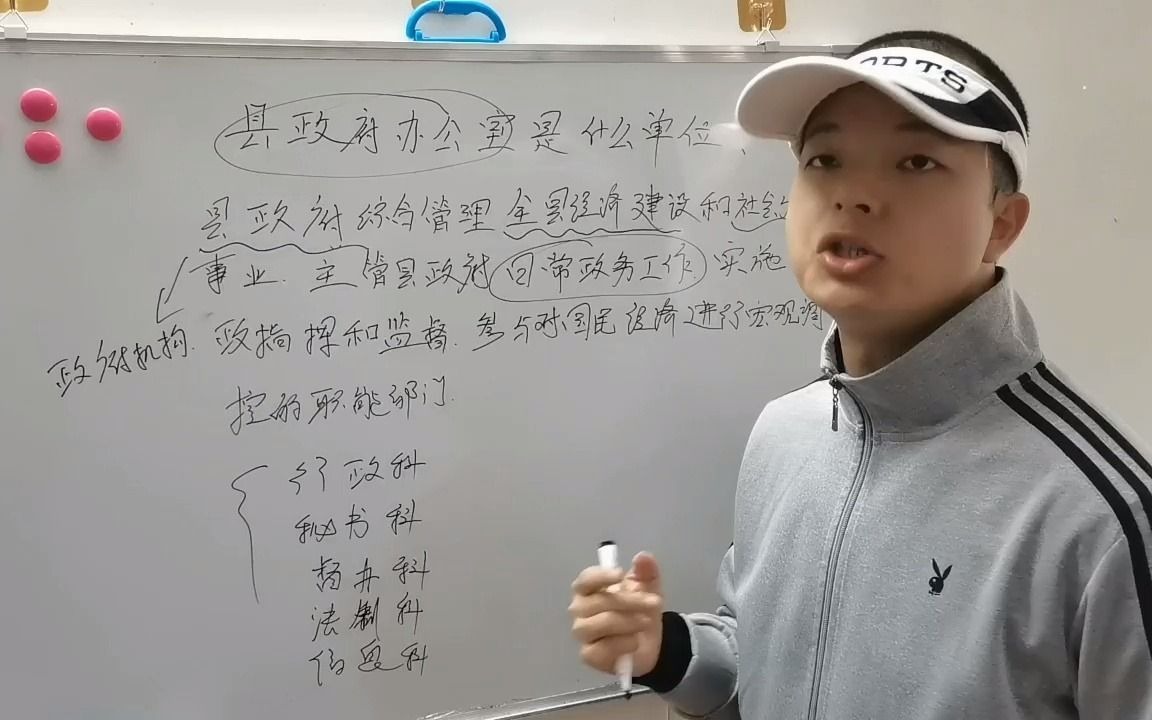 县政府办公室是什么单位、
县政府综合管理全县经济建设和社会
事业.主管县政府日常政务工作.实施
政府机构.
政指挥和监督.参与对国民经济进行宏观调
控的职能部门.
行政科
秘书科
督办科
法制科
信息科
ORTS